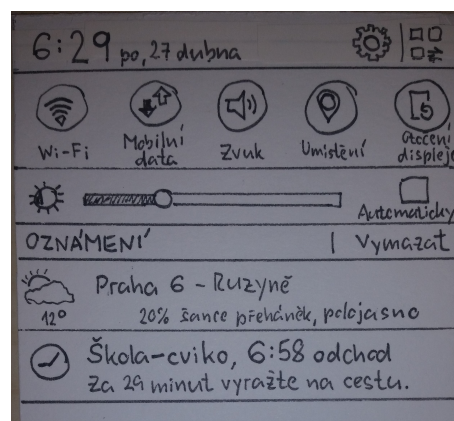 6:29 po, 27 dubna
Wi-Fi
Mobilní data
Zvuk
Umístění
Otočení displeje
Automaticky
OZNÁMENÍ | Vymazat
Praha 6 - Ruzyně
12° 20% šance přeháněk, polojasno
Škola-cviko, 6:58 odchod
Za 29 minut vyražte na cestu.